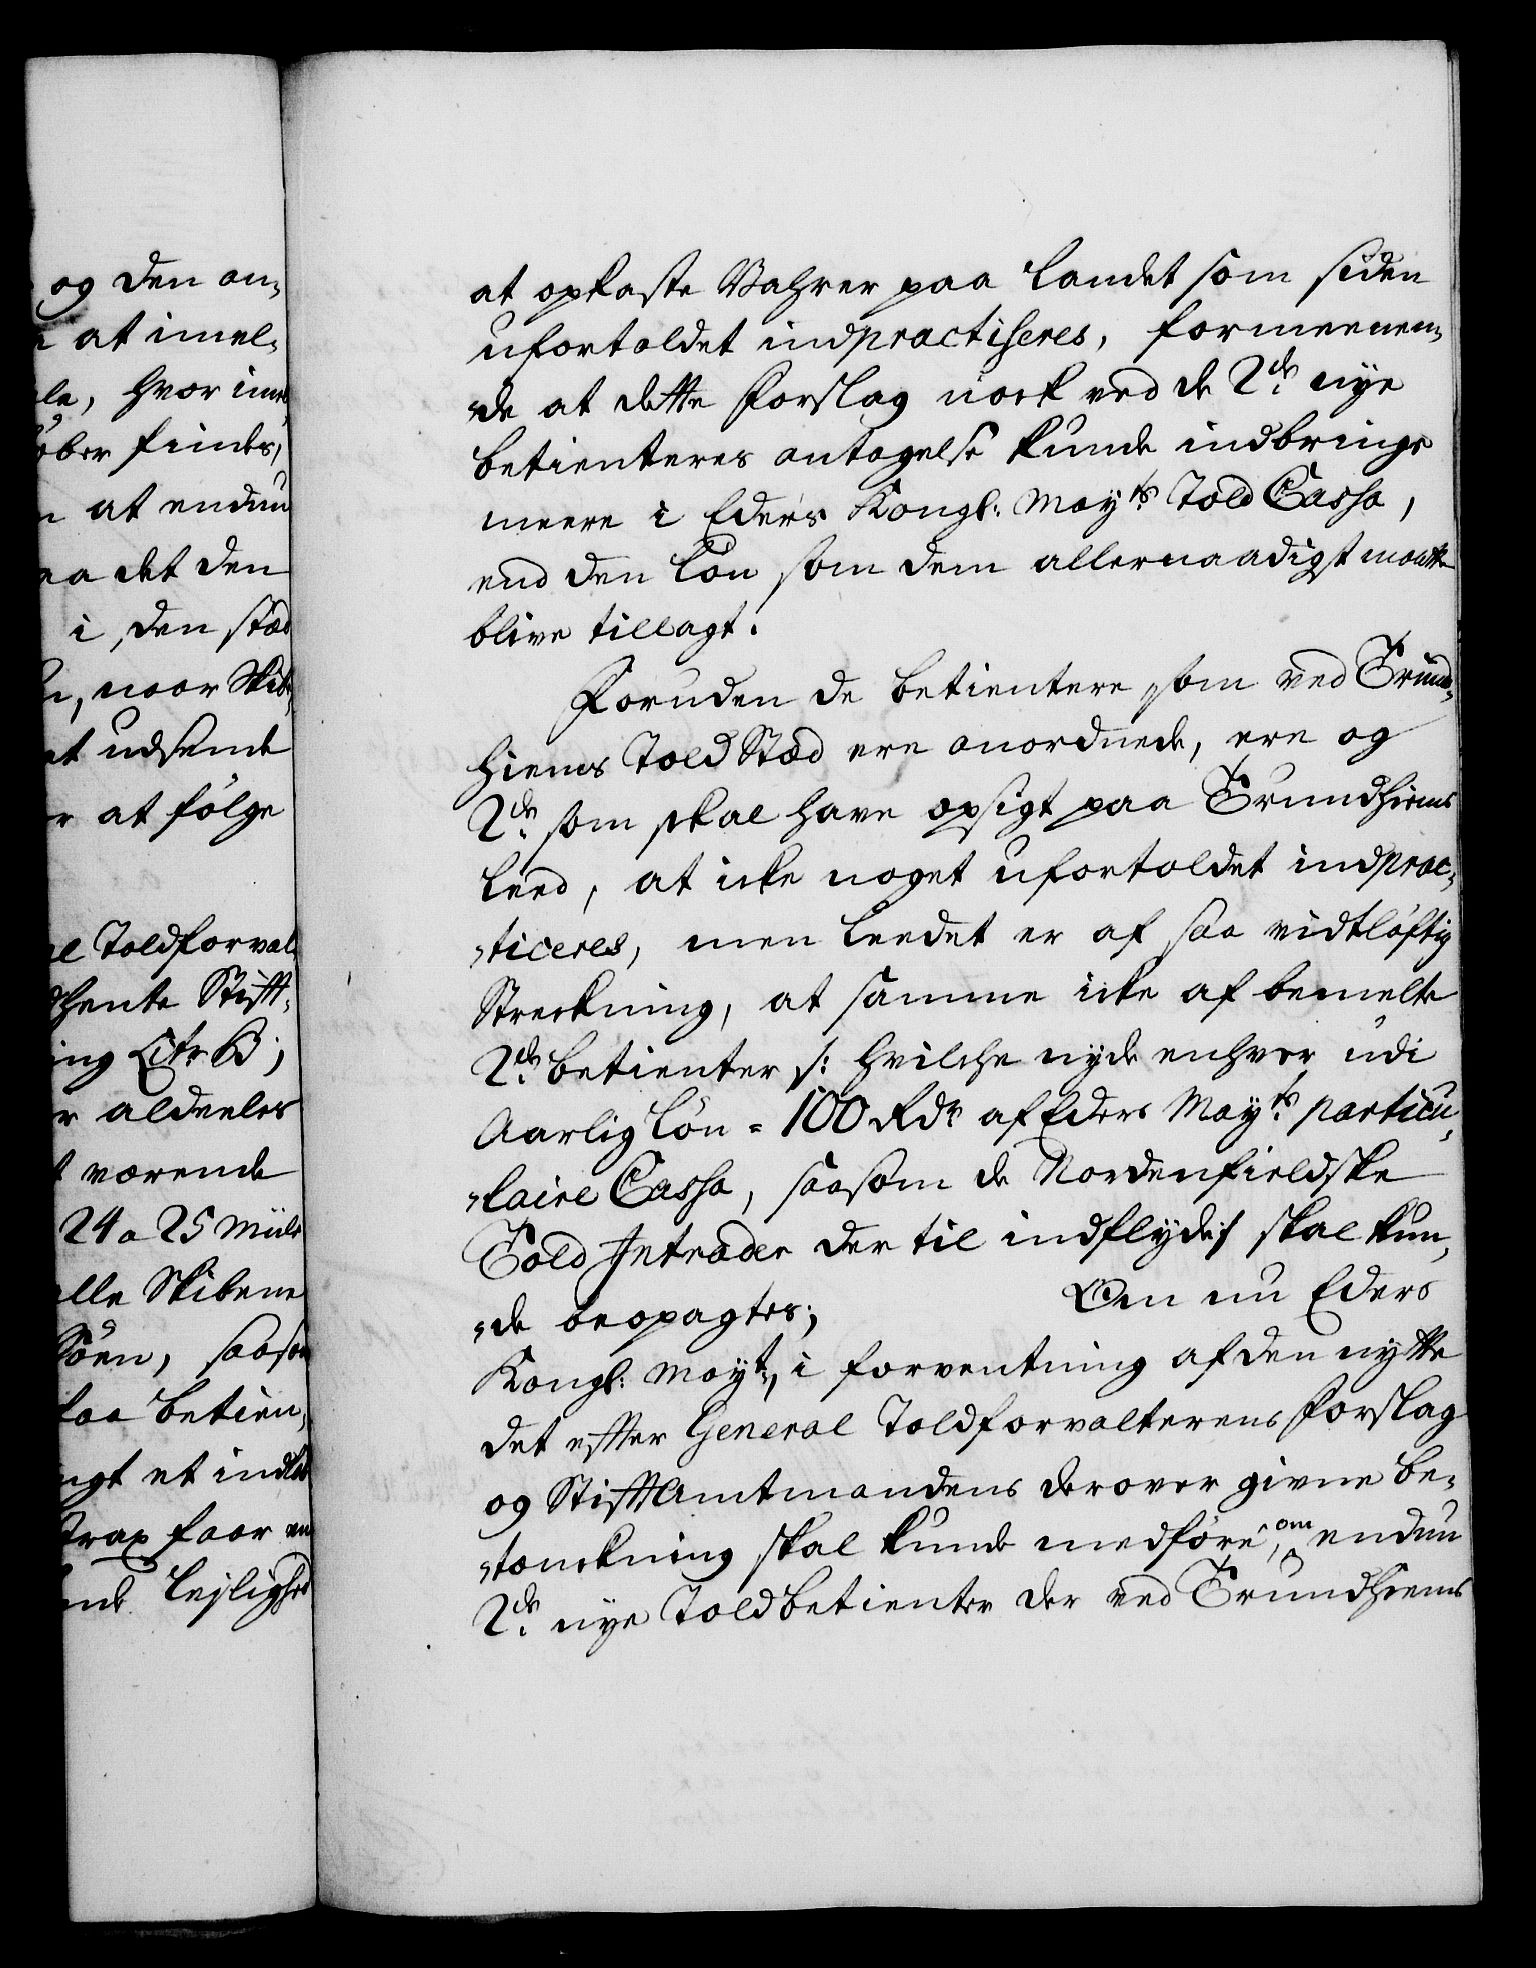 og den an¬
at imel¬
la, hvor imel
øber findes,
at endnu
aa det den
i, den stæd
n, naar Skib
at udsende
r at følge
al Toldforval
dhente Stifft¬
ing Litr B;
r aldeeles
t værende
24 a 25 Miile
alle Skibene
Søen, saasom
saa betien¬
ngt et indløb
strax faar en
nde lejlighed
at opkaste Vahrer paa landet som siden
ufortoldet indpractiseres, formeenen¬
de at dette Forslag nock ved de 2de nye
betienteres antagelse kunde indbringe
meere i Eders Kongl: Mayts Told Cassa,
end den løn som dem allernaadigst maatte
blive tillagt.
Foruden de betientere som ved Trund¬
hiems Told Stæd ere anordnede, ere og
2de som skal have opsigt paa Trundhiems
leed, at icke noget ufortoldet indprac¬
ticeres, men leedet er af saa vidtløftig
Streckning, at samme icke af bemelte
2de betienter /: hvilche nyde enhver udi
Aarlig løn = 100 Rdr af Eders Mayts particu¬
laire Cassa, saasom de Nordenfieldske
Told Intrader der til indflyde :/ skal kun¬
de beopagtes; Om nu Eders
Kongl: Mayt, i forventning af den nytte
det effter General Toldforvalterens Forslag
og StifftAmtmandens derover givne be¬
tænckning skal kunde medføre, om endnu
2de nye Toldbetienter der ved Trundhiems